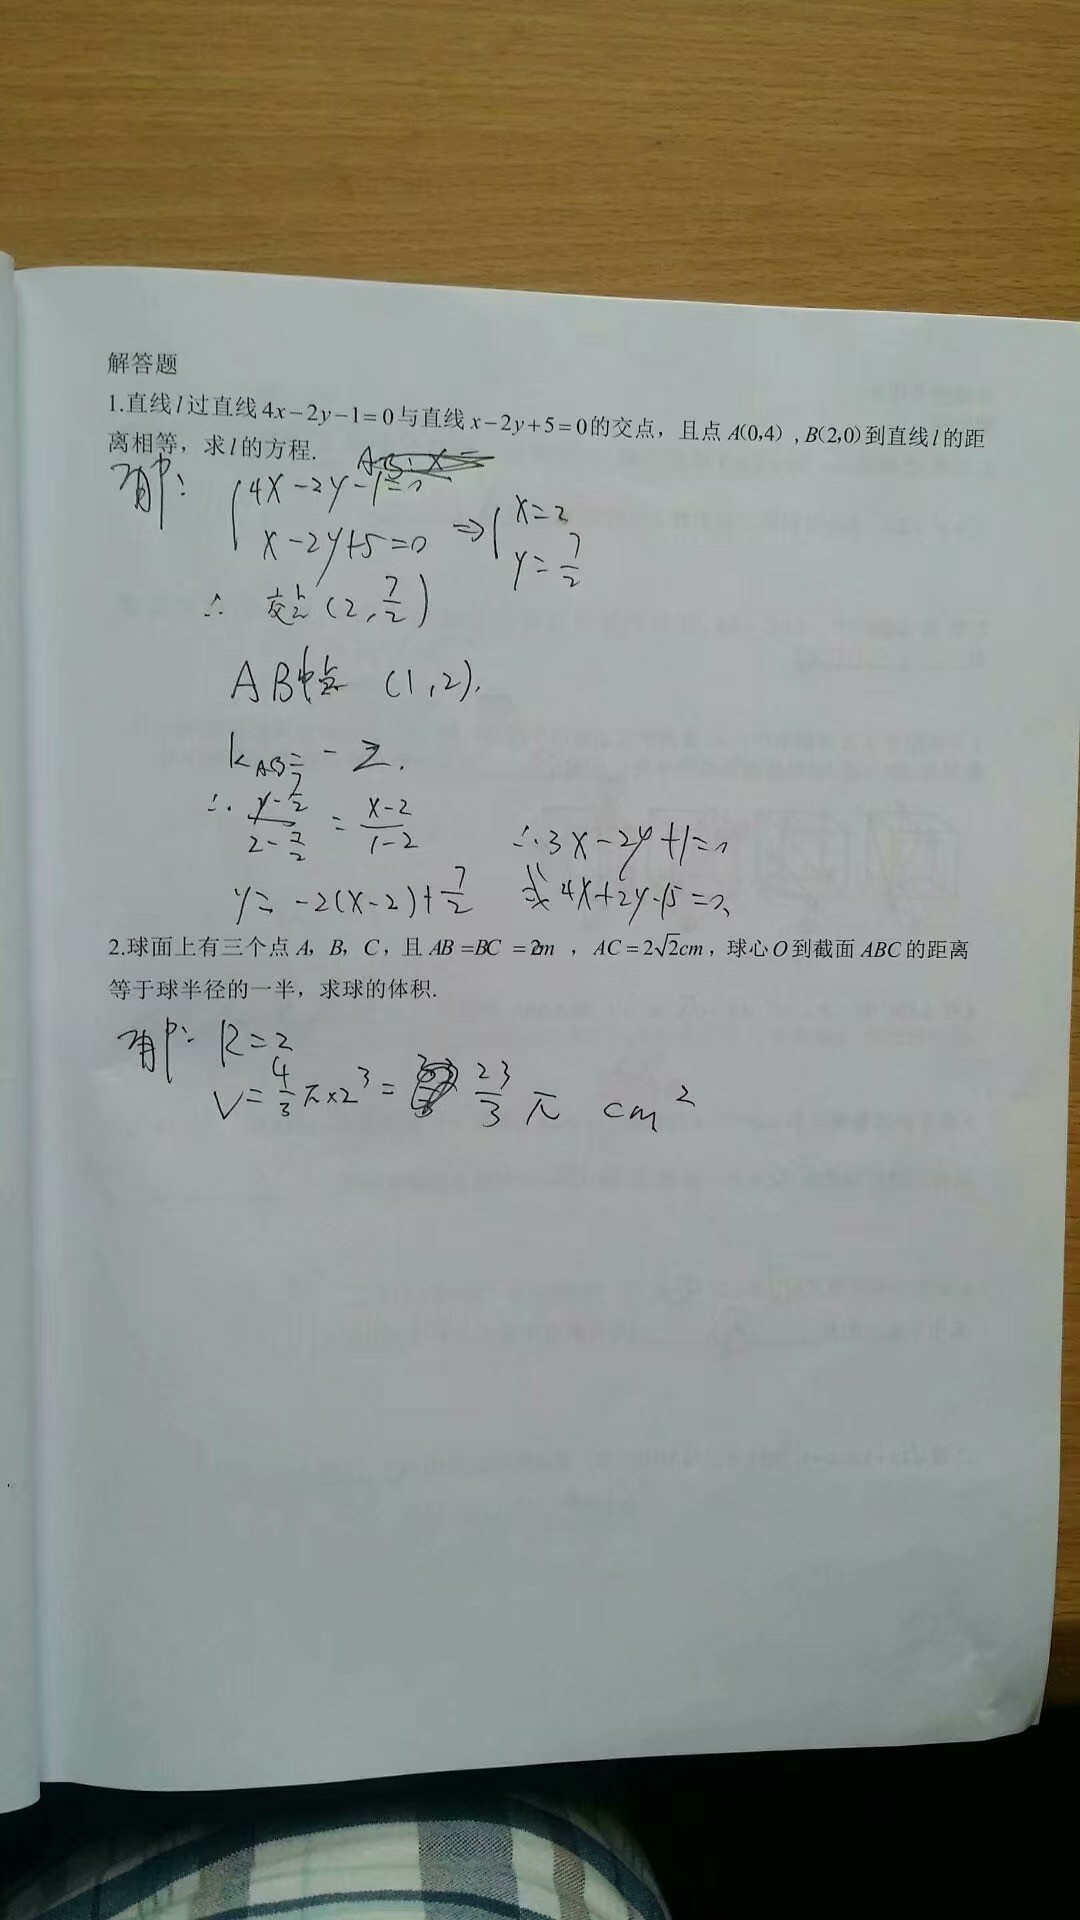 解答题
1.直线l过直线4x-2y-1=0与直线x-2y+5=0的交点，且点A(0,4),B(2,0)到直线l的距
离相等，求l的方程.
解:
4x-2y-1=0
x-2y+5=0 ⇒ x=2
y=7/2
∴ 交点(2,7/2)
AB中点 (1,2).
k_AB=-2.
∴ (y-7/2)/(2-7/2) = (x-2)/(1-2) ∴3x-2y+1=0
y=-2(x-2)+7/2 或4x+2y-15=0
2.球面上有三个点A，B，C，且AB=BC=2cm，AC=2√2cm，球心O到截面ABC的距离
等于球半径的一半，求球的体积.
解: R=2
V=4/3π×2³= 23/3 π cm²